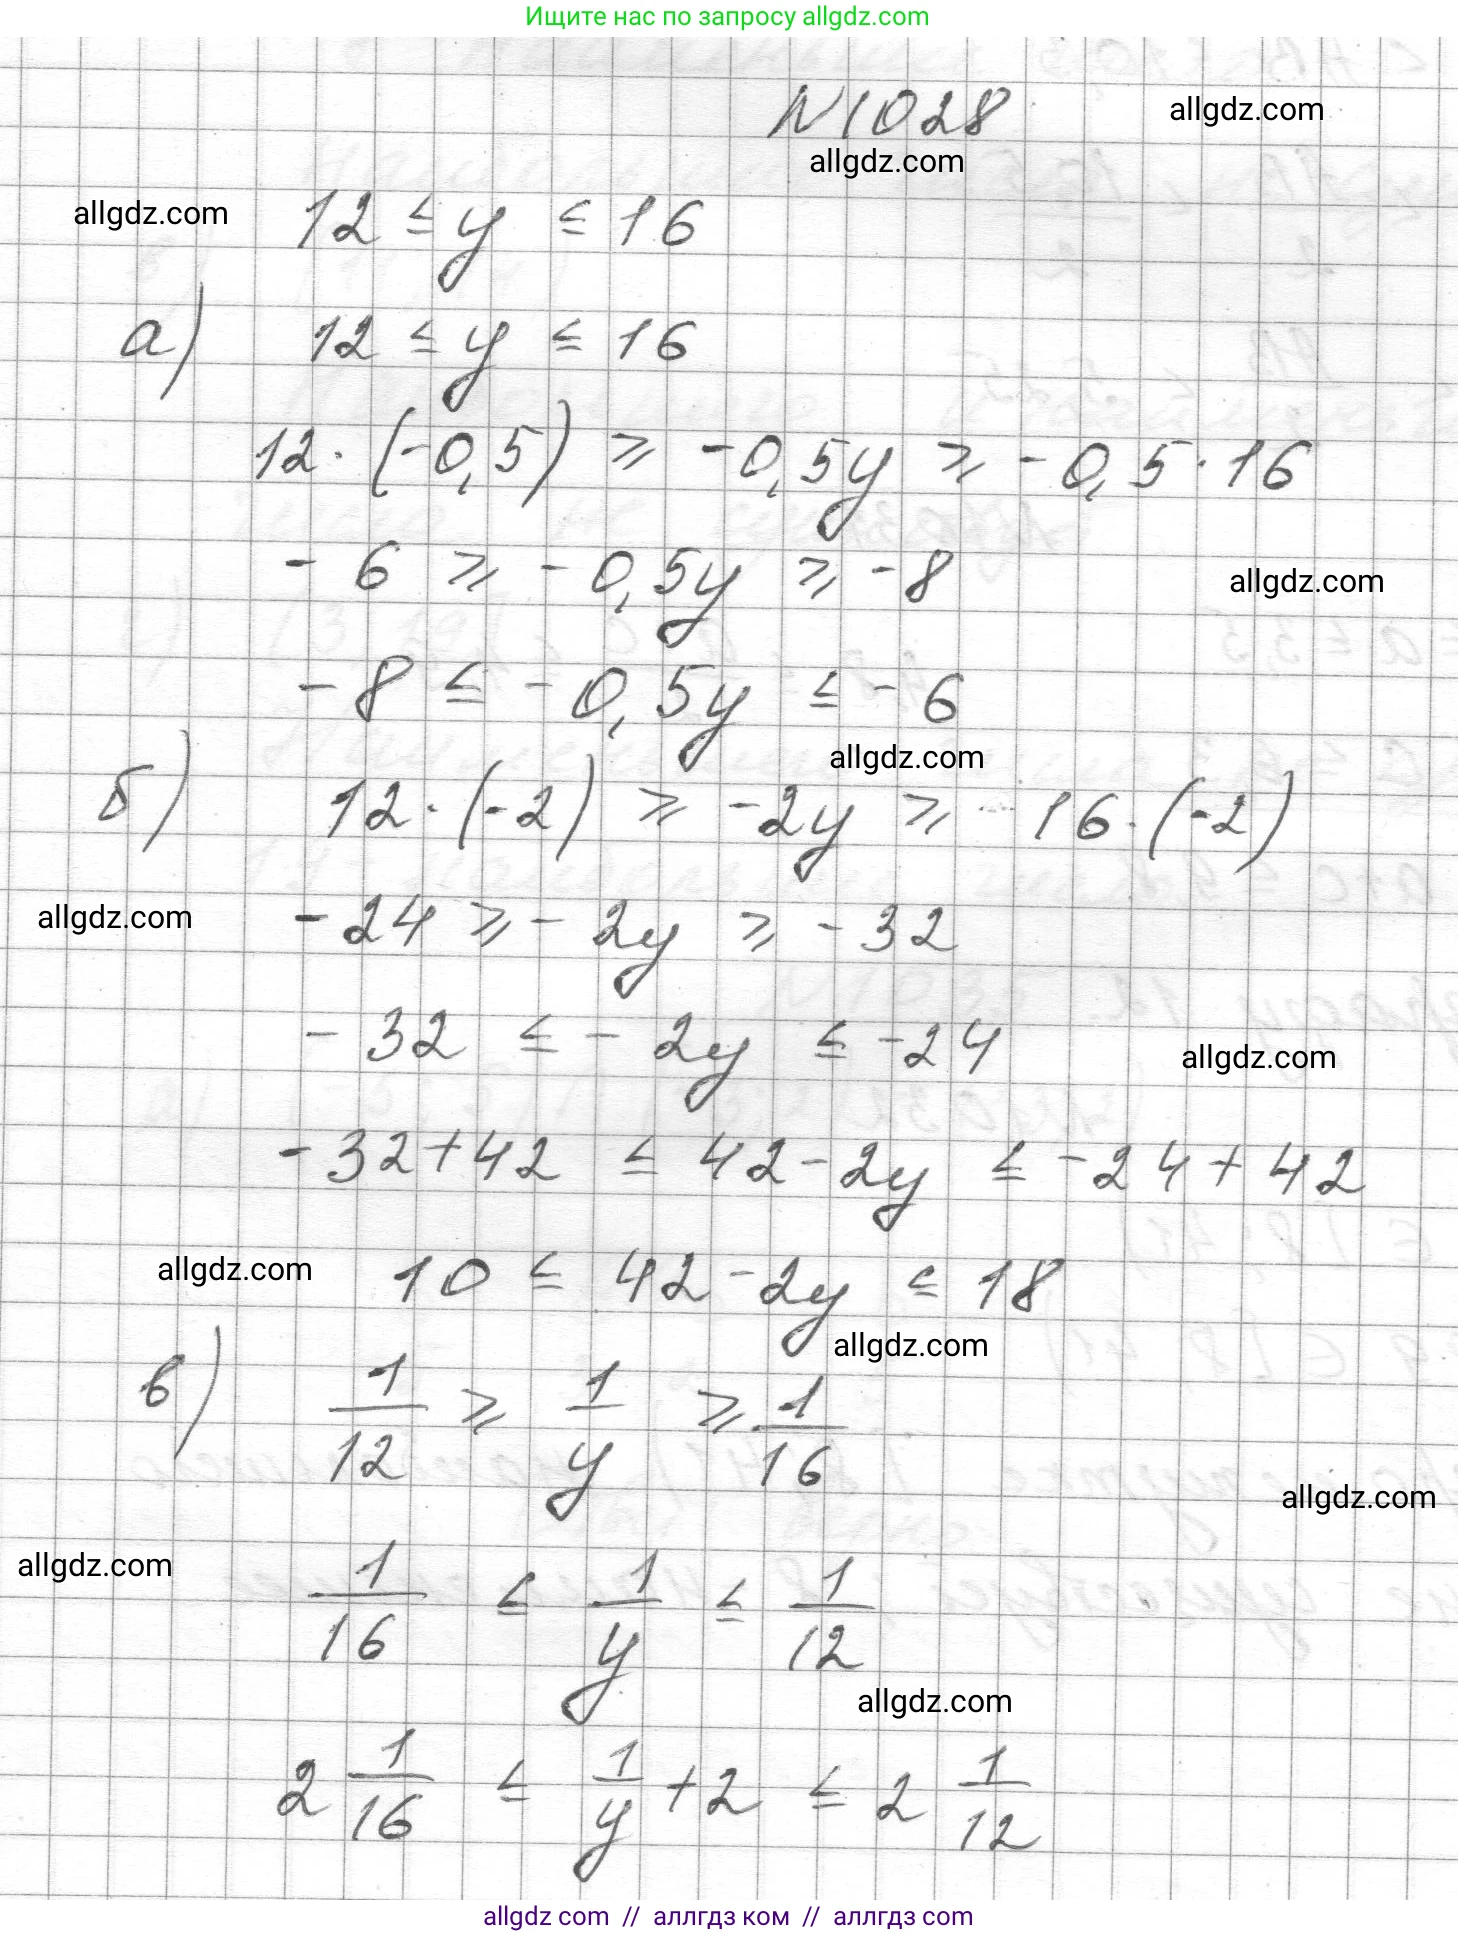 Ищите нас по запросу allgdz.com
N1028
allgdz.com
allgdz.com
allgdz.com
12 ≤ y ≤ 16
а) 12 ≤ y ≤ 16
12·(-0,5) ≥ -0,5y ≥ -0,5·16
-6 ≥ -0,5y ≥ -8
allgdz.com
-8 ≤ -0,5y ≤ -6
allgdz.com
б) 12·(-2) ≥ -2y ≥ 16·(-2)
allgdz.com
-24 ≥ -2y ≥ -32
-32 ≤ -2y ≤ -24
allgdz.com
-32+42 ≤ 42-2y ≤ -24+42
allgdz.com
10 ≤ 42-2y ≤ 18
allgdz.com
в) 1/12 ≥ 1/y ≥ 1/16
allgdz.com
allgdz.com
1/16 ≤ 1/y ≤ 1/12
allgdz.com
2 1/16 ≤ 1/y + 2 ≤ 2 1/12
allgdz com // аллгдз ком // аллгдз com